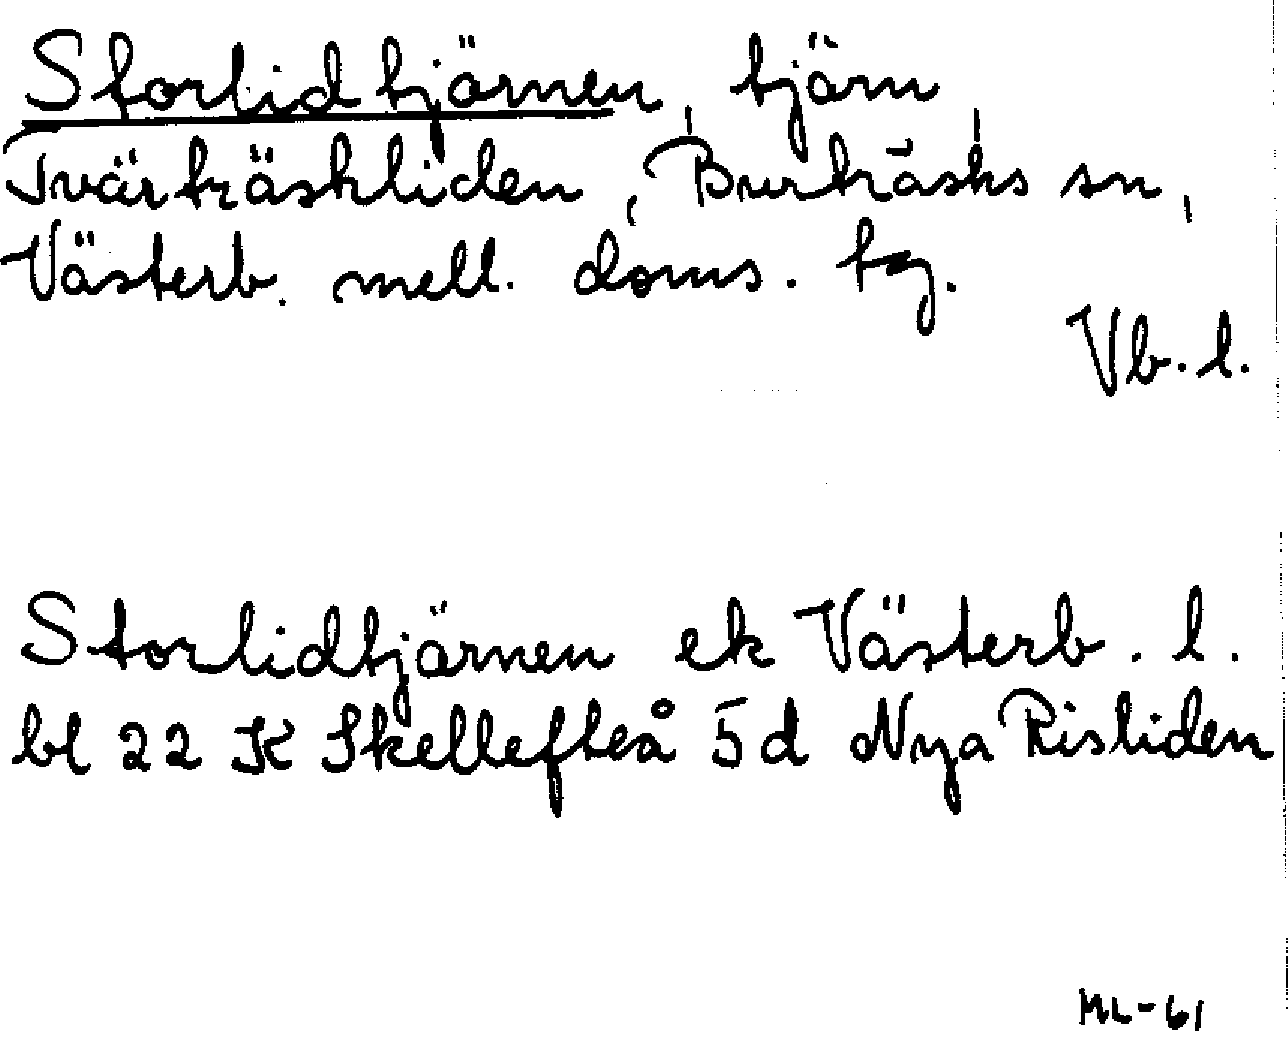 Storlidtjärnen, tjärn,
Tvärträskliden, Burträsks sn,
Västerb. mell. doms. tg.
Vb. l.
Storlidtjärnen ek Västerb. l.
bl 22 K Skellefteå 5d Nya Risliden
ML-61